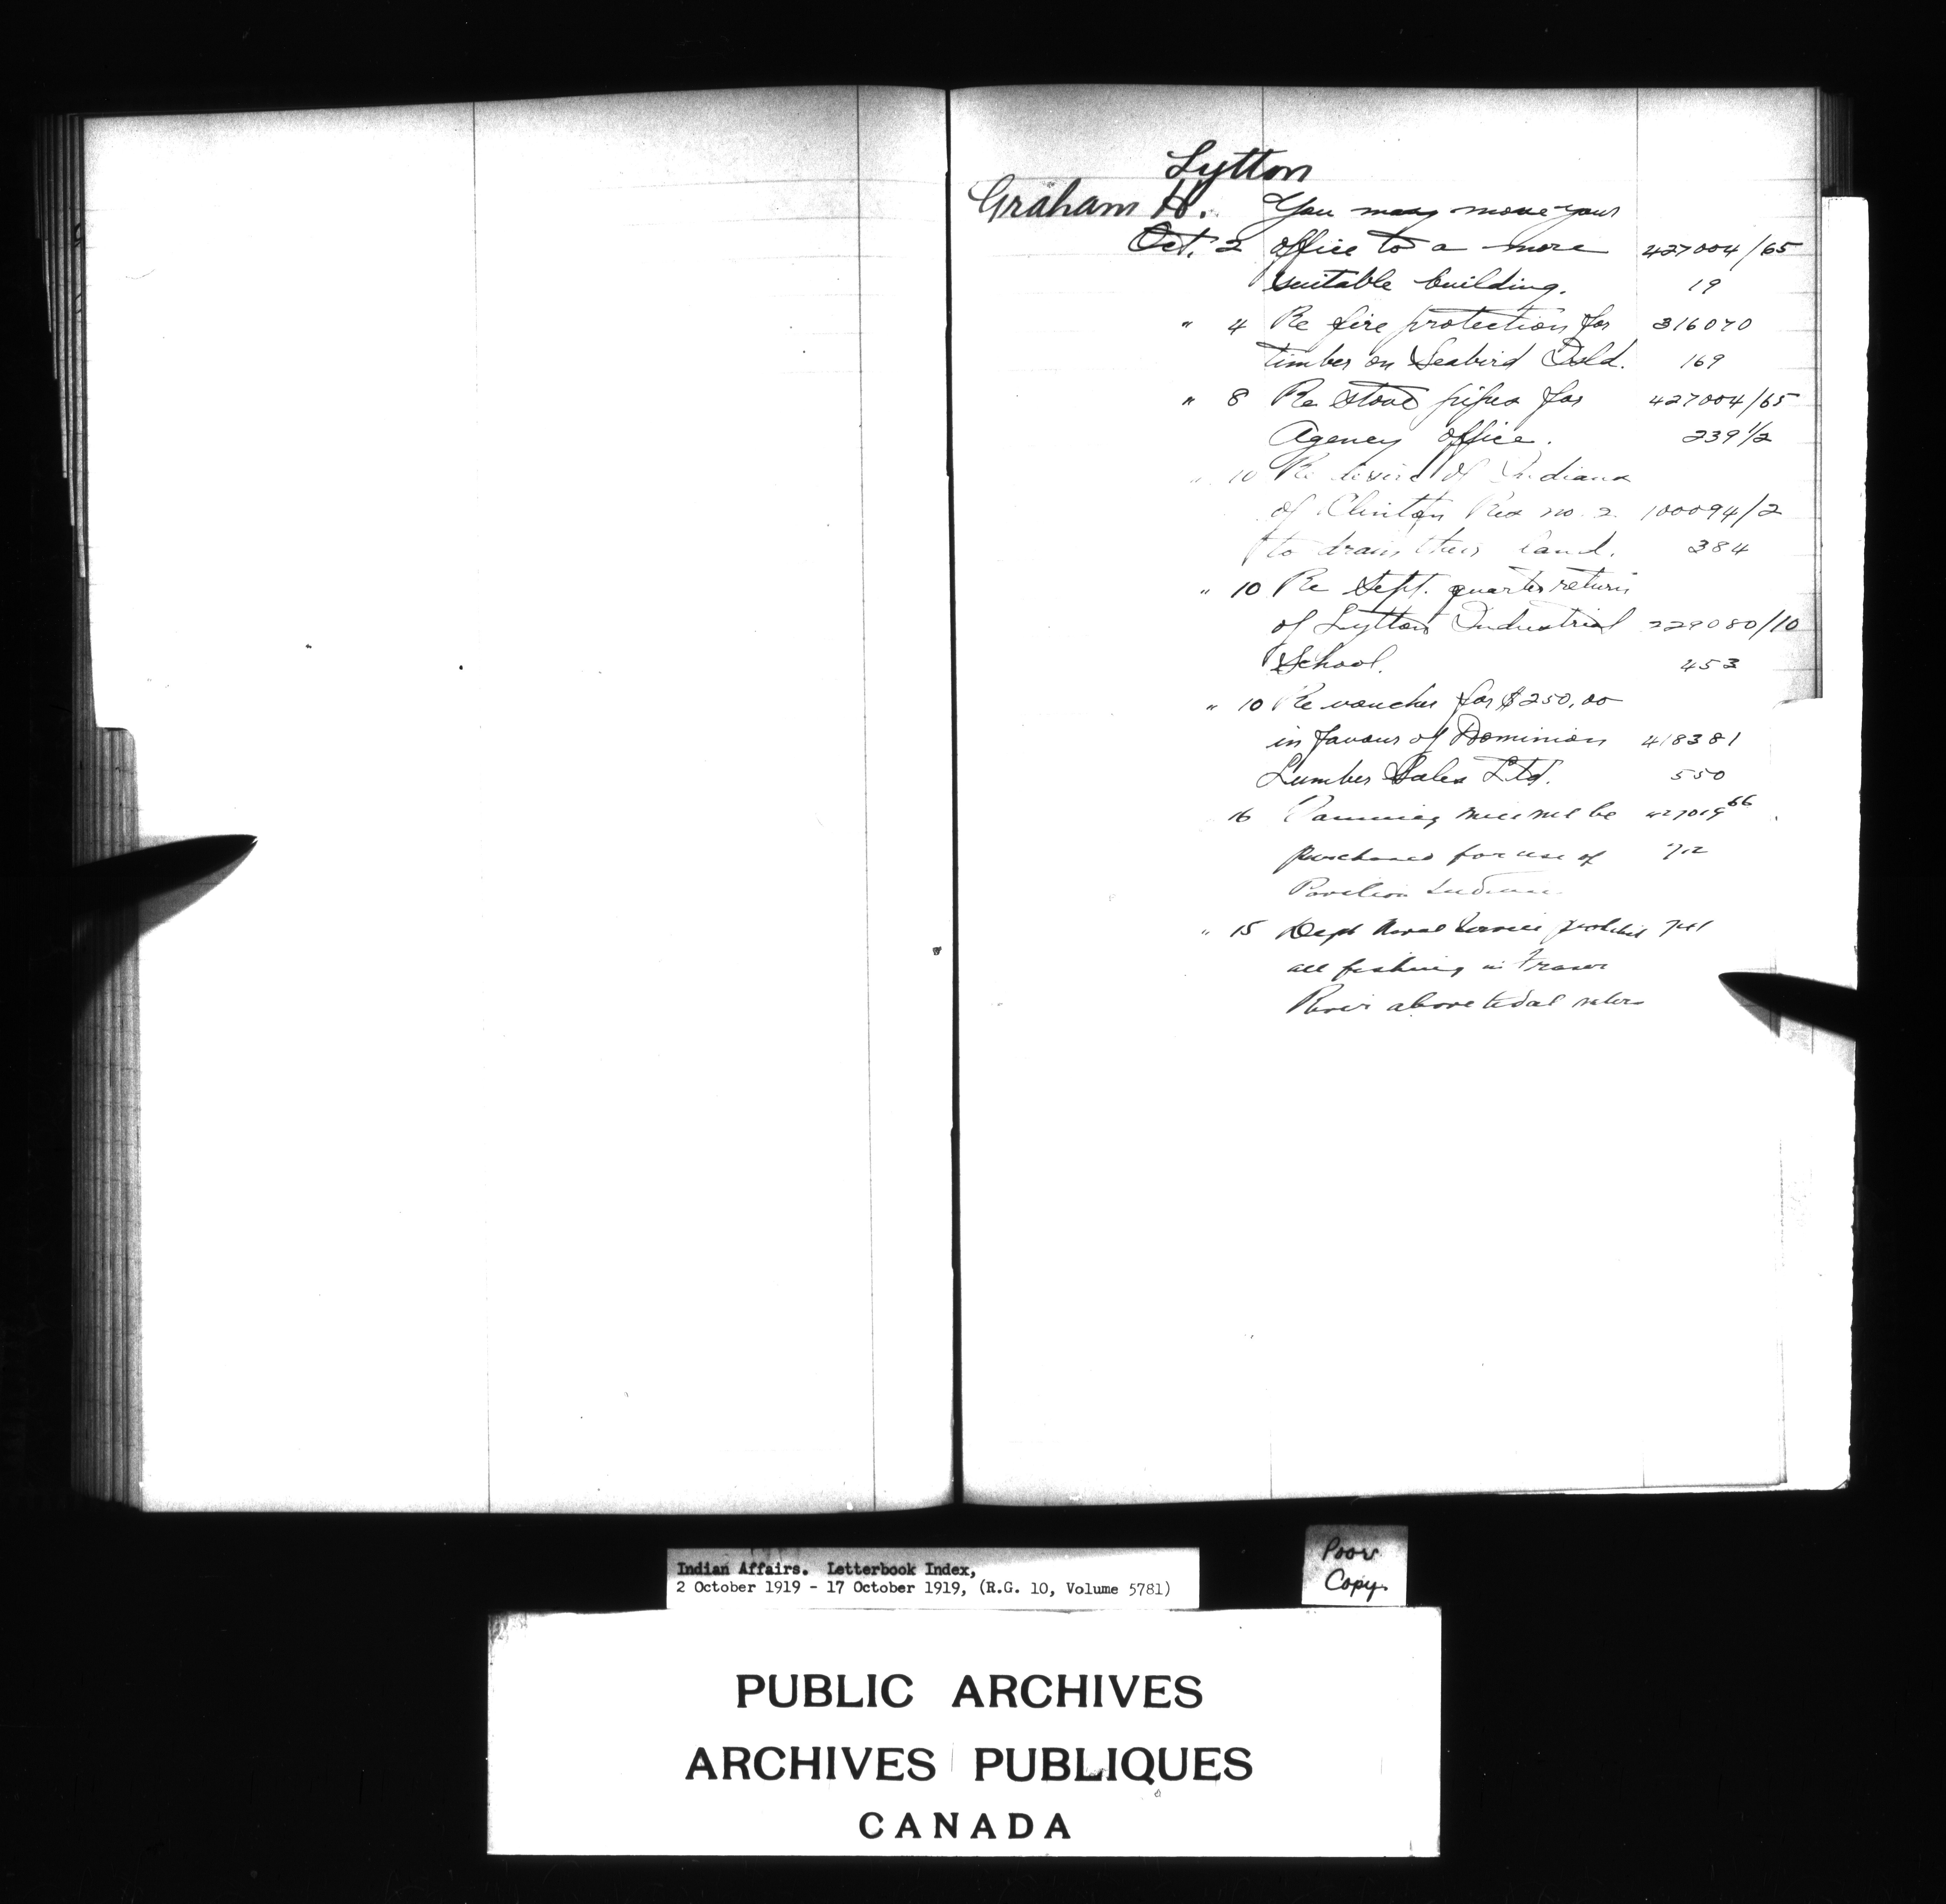 Lytton
Graham H. You may move your
Oct. 2 office to a more 427004/65
suitable building. 19
" 4 Re fire protection for 316070
timber on Seabird Isld. 169
" 8 Re stove pipes for 427004/65
Agency office. 239 1/2
" 10 Re desire of Indians
of Clinton Res no. 2 100094/2
to drain their land. 384
" 10 Re Sept. quarter return
of Lytton Industrial 229080/10
School. 453
" 10 Re voucher for $250.00
in favour of Dominion 418381
Lumber Sales Ltd. 550
16 be
purchased for use of 712
Pavilion Indians
" 15 Dept Naval Service prohibit
all fishing in Fraser
River above tidal water
Indian Affairs. Letterbook Index,
2 October 1919 - 17 October 1919, (R.G. 10, Volume 5781)
Poor
Copy.
PUBLIC ARCHIVES
ARCHIVES PUBLIQUES
CANADA